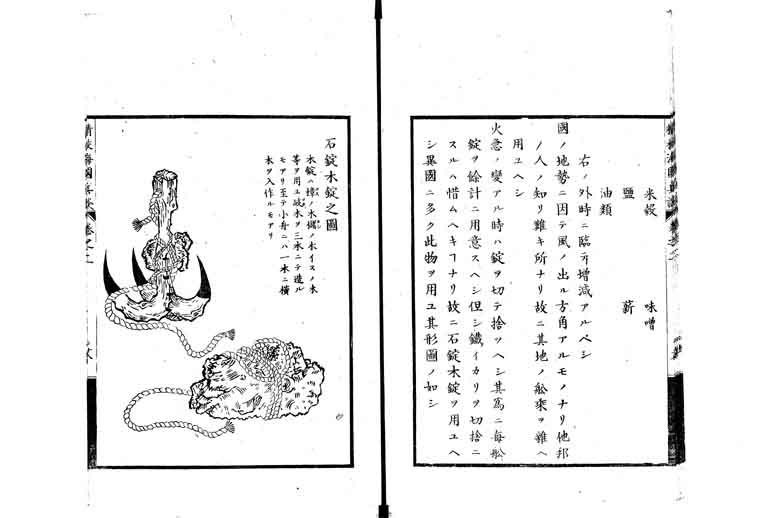 米穀 味噌
鹽 薪
油類
右ノ外時ニ臨ミ増減アルベシ
國ノ地勢ニ因テ風ノ出ル方角アルモノナリ他邦
ノ人ノ知リ難キ所ナリ故ニ其地ノ舩乘ヲ雜ヘ
用ユヘシ
火急ノ變アル時ハ錠ヲ切テ捨ツヘシ其爲ニ毎舩
錠ヲ餘計ニ用意スヘシ但シ鐵イカリヲ切捨ニ
スルハ惜ムヘキヿナリ故ニ石錠木錠ヲ用ユヘ
シ異國ニ多ク此物ヲ用ユ其形圖ノ如シ
石錠木錠之圖
木錠ハ樟ノ木櫧ノ木イスノ木
等ヲ用ユ或木ヲ三木ニテ造ル
モアリ至テ小舟ニハ一木ニ横
木ヲ入作ルモアリ